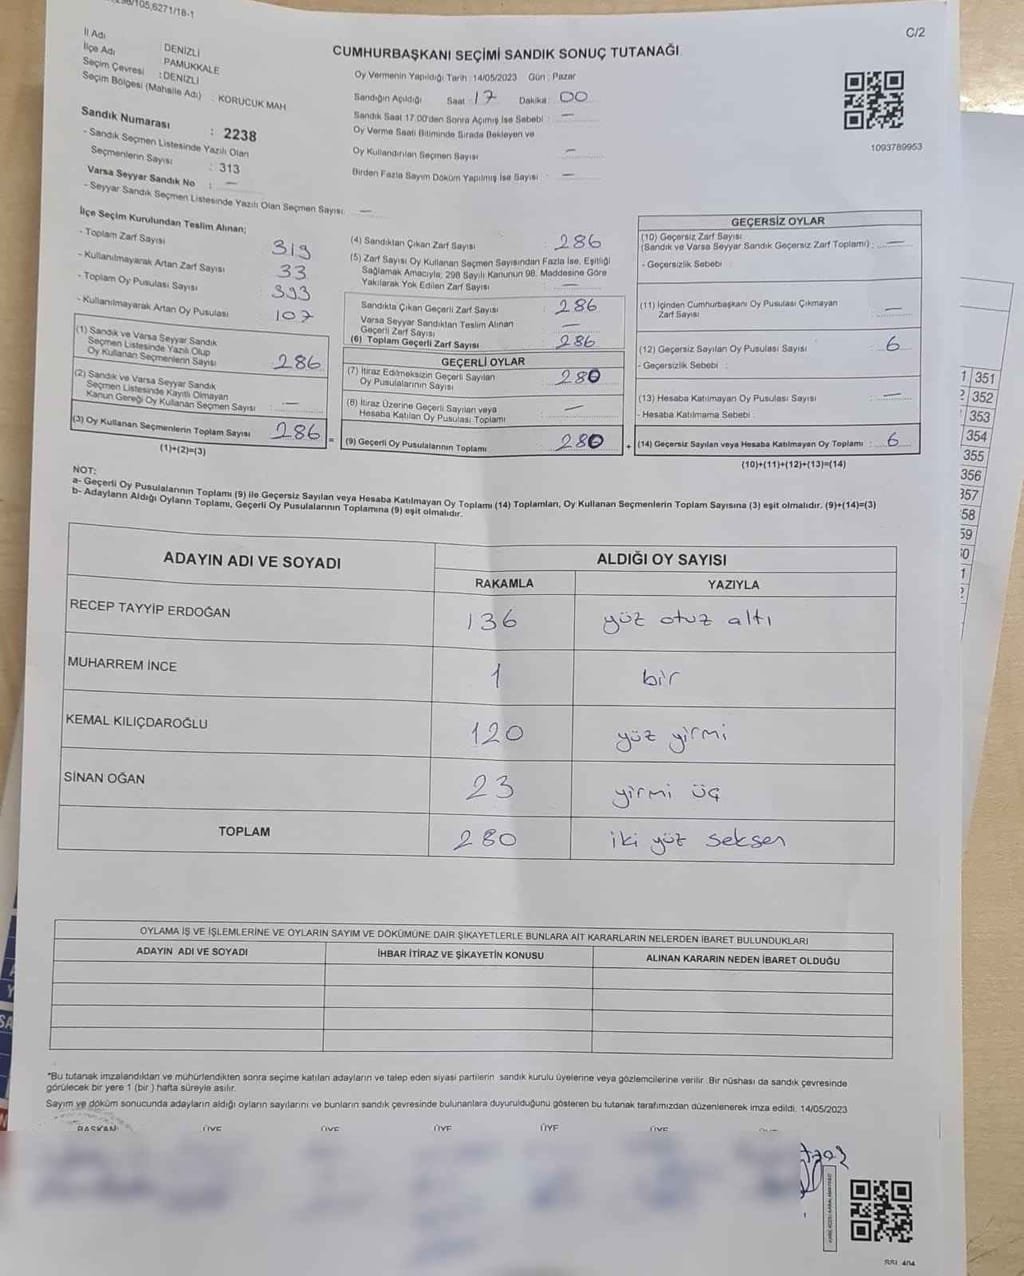 298/105,6271/18-1
C/2
İl Adı : DENİZLİ
İlçe Adı : PAMUKKALE
Seçim Çevresi : DENİZLİ
Seçim Bölgesi (Mahalle Adı) : KORUCUK MAH
Sandık Numarası : 2238
- Sandık Seçmen Listesinde Yazılı Olan
Seçmenlerin Sayısı : 313
Varsa Seyyar Sandık No : —
- Seyyar Sandık Seçmen Listesinde Yazılı Olan Seçmen Sayısı : —
CUMHURBAŞKANI SEÇİMİ SANDIK SONUÇ TUTANAĞI
Oy Vermenin Yapıldığı Tarih : 14/05/2023 Gün : Pazar
Sandığın Açıldığı Saat : 17 Dakika : 00
Sandık Saat 17.00'den Sonra Açımış İse Sebebi : —
Oy Verme Saati Bitiminde Sırada Bekleyen ve
Oy Kullandırılan Seçmen Sayısı : —
Birden Fazla Sayım Döküm Yapılmış İse Sayısı : —
1093789953
İlçe Seçim Kurulundan Teslim Alınan;
- Toplam Zarf Sayısı : 319
- Kullanılmayarak Artan Zarf Sayısı : 33
- Toplam Oy Pusulası Sayısı : 393
- Kullanılmayarak Artan Oy Pusulası : 107
(1) Sandık ve Varsa Seyyar Sandık
Seçmen Listesinde Yazılı Olup
Oy Kullanan Seçmenlerin Sayısı : 286
(2) Sandık ve Varsa Seyyar Sandık
Seçmen Listesinde Kayıtlı Olmayan
Kanun Gereği Oy Kullanan Seçmen Sayısı : —
(3) Oy Kullanan Seçmenlerin Toplam Sayısı : 286 =
(1)+(2)=(3)
(4) Sandıktan Çıkan Zarf Sayısı : 286
(5) Zarf Sayısı Oy Kullanan Seçmen Sayısından Fazla İse, Eşitliği
Sağlamak Amacıyla, 298 Sayılı Kanunun 98. Maddesine Göre
Yakılarak Yok Edilen Zarf Sayısı : —
Sandıkta Çıkan Geçerli Zarf Sayısı : 286
Varsa Seyyar Sandıktan Teslim Alınan
Geçerli Zarf Sayısı : —
(6) Toplam Geçerli Zarf Sayısı : 286
GEÇERLİ OYLAR
(7) İtiraz Edilmeksizin Geçerli Sayılan
Oy Pusulalarının Sayısı : 280
(8) İtiraz Üzerine Geçerli Sayılan veya
Hesaba Katılan Oy Pusulası Toplamı : —
(9) Geçerli Oy Pusulalarının Toplamı : 280 +
GEÇERSİZ OYLAR
(10) Geçersiz Zarf Sayısı
(Sandık ve Varsa Seyyar Sandık Geçersiz Zarf Toplamı) : —
- Geçersizlik Sebebi :
(11) İçinden Cumhurbaşkanı Oy Pusulası Çıkmayan
Zarf Sayısı : —
(12) Geçersiz Sayılan Oy Pusulası Sayısı : 6
- Geçersizlik Sebebi :
(13) Hesaba Katılmayan Oy Pusulası Sayısı : —
- Hesaba Katılmama Sebebi :
(14) Geçersiz Sayılan veya Hesaba Katılmayan Oy Toplamı : 6
(10)+(11)+(12)+(13)=(14)
NOT:
a- Geçerli Oy Pusulalarının Toplamı (9) ile Geçersiz Sayılan veya Hesaba Katılmayan Oy Toplamı (14) Toplamları, Oy Kullanan Seçmenlerin Toplam Sayısına (3) eşit olmalıdır. (9)+(14)=(3)
b- Adayların Aldığı Oyların Toplamı, Geçerli Oy Pusulalarının Toplamına (9) eşit olmalıdır.
ADAYIN ADI VE SOYADI ALDIĞI OY SAYISI
RAKAMLA YAZIYLA
RECEP TAYYİP ERDOĞAN 136 yüz otuz altı
MUHARREM İNCE 1 bir
KEMAL KILIÇDAROĞLU 120 yüz yirmi
SİNAN OĞAN 23 yirmi üç
TOPLAM 280 iki yüz seksen
OYLAMA İŞ VE İŞLEMLERİNE VE OYLARIN SAYIM VE DÖKÜMÜNE DAİR ŞİKAYETLERLE BUNLARA AİT KARARLARIN NELERDEN İBARET BULUNDUKLARI
ADAYIN ADI VE SOYADI İHBAR İTİRAZ VE ŞİKAYETİN KONUSU ALINAN KARARIN NEDEN İBARET OLDUĞU
*Bu tutanak imzalandıktan ve mühürlendikten sonra seçime katılan adayların ve talep eden siyasi partilerin sandık kurulu üyelerine veya gözlemcilerine verilir. Bir nüshası da sandık çevresinde
görülecek bir yere 1 (bir) hafta süreyle asılır.
Sayım ve döküm sonucunda adayların aldığı oyların sayılarını ve bunların sandık çevresinde bulunanlara duyurulduğunu gösteren bu tutanak tarafımızdan düzenlenerek imza edildi. 14/05/2023
BAŞKAN ÜYE ÜYE ÜYE ÜYE ÜYE
1 351
2 352
353
354
355
356
357
58
59